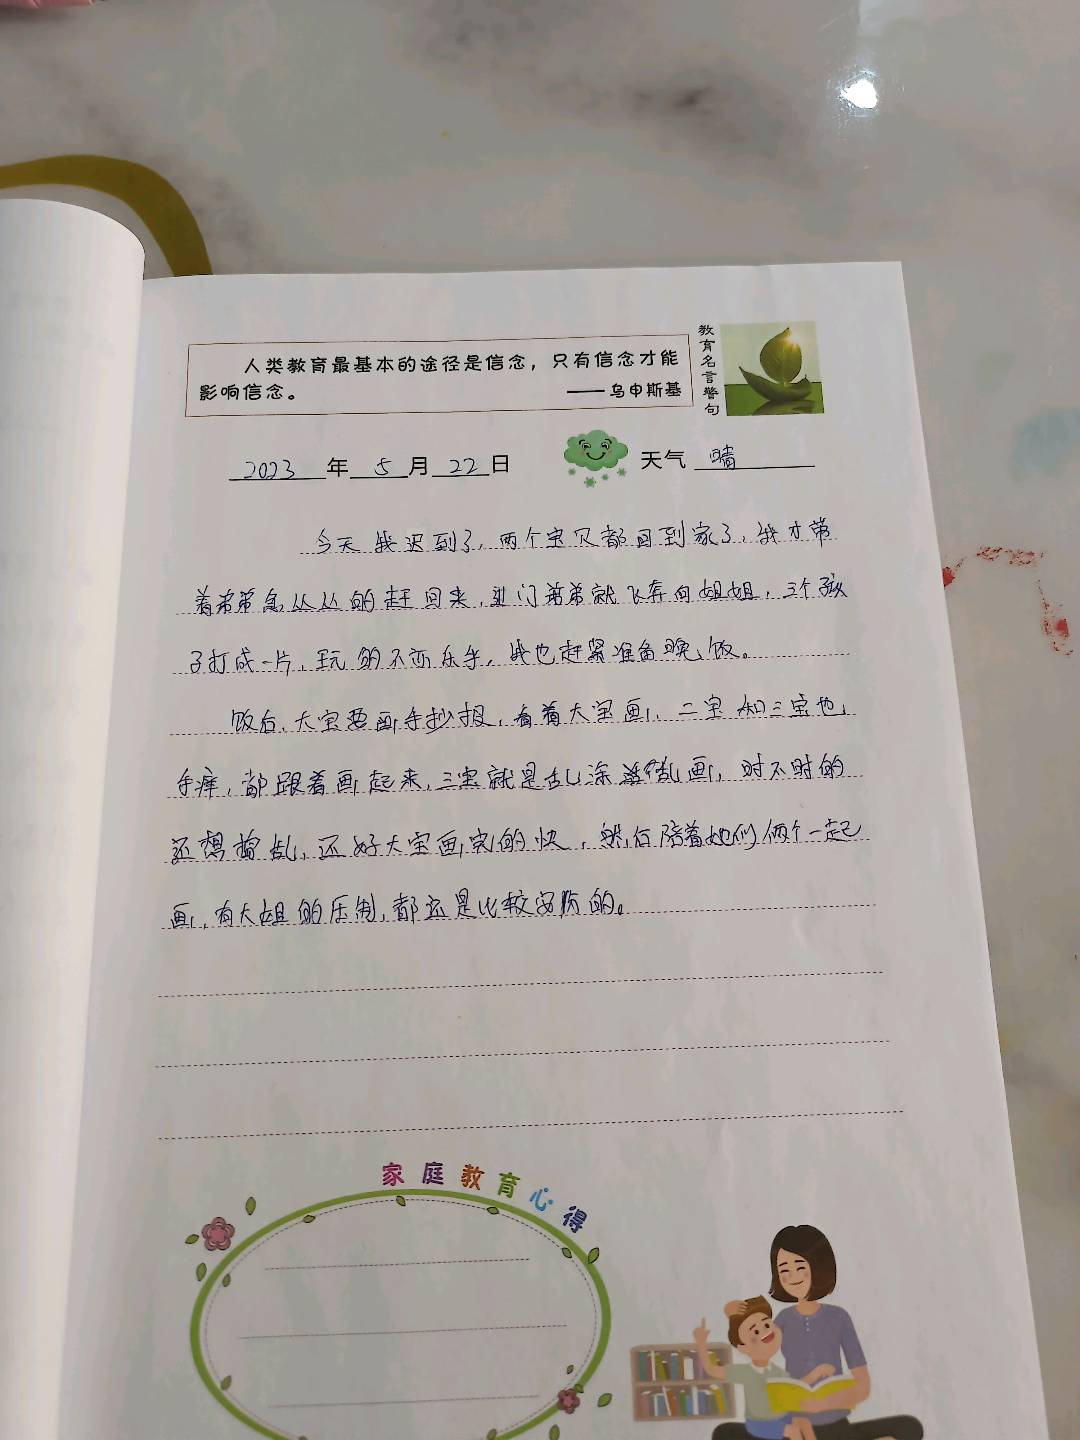 人类教育最基本的途径是信念，只有信念才能
影响信念。
——乌申斯基
教育名言警句
2023年5月22日
天气 晴
今天我迟到了，两个宝贝都回到家了，我才带
着弟弟急匆匆的赶回来，进门弟弟就飞奔向姐姐，三个孩
子打成一片，玩的不亦乐乎，我也赶紧准备晚饭。
饭后，大宝要画手抄报，看着大宝画，二宝和三宝也
手痒，都跟着画起来，三宝就是乱涂乱画，时不时的
还想捣乱，还好大宝画完的快，然后陪着她们俩个一起
画，有大姐的压制，都还是比较安防的。
家庭教育心得